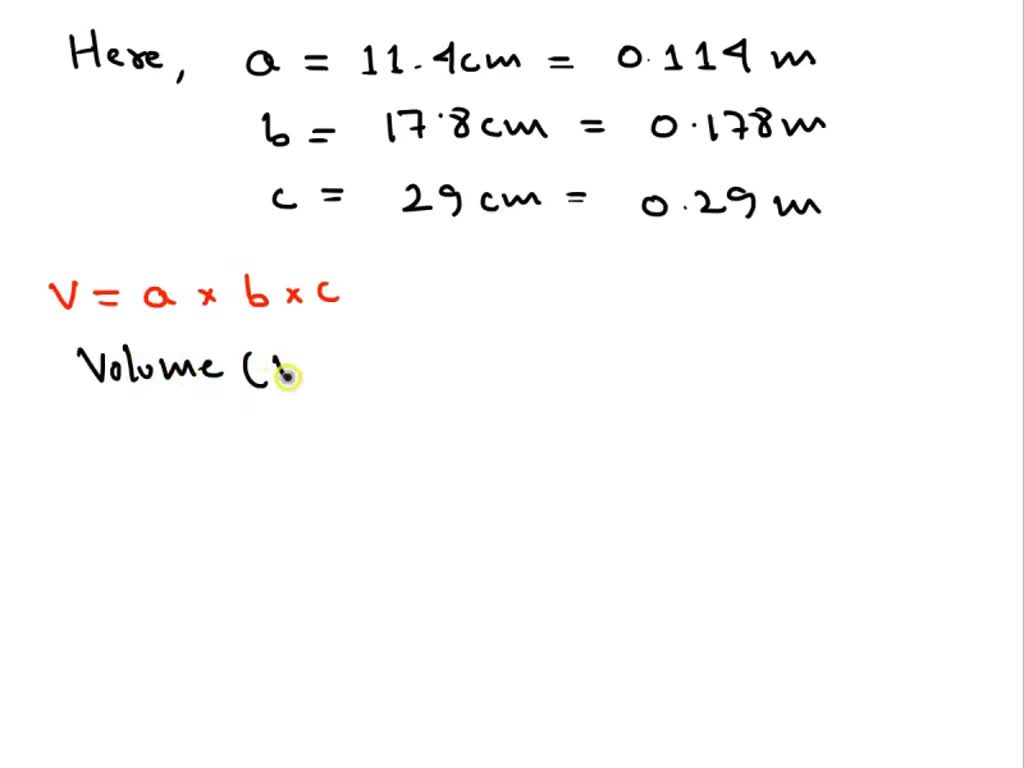 Here, a = 11.4cm = 0.114 m
b = 17.8cm = 0.178m
c = 29 cm = 0.29 m
V = a × b × c
Volume (